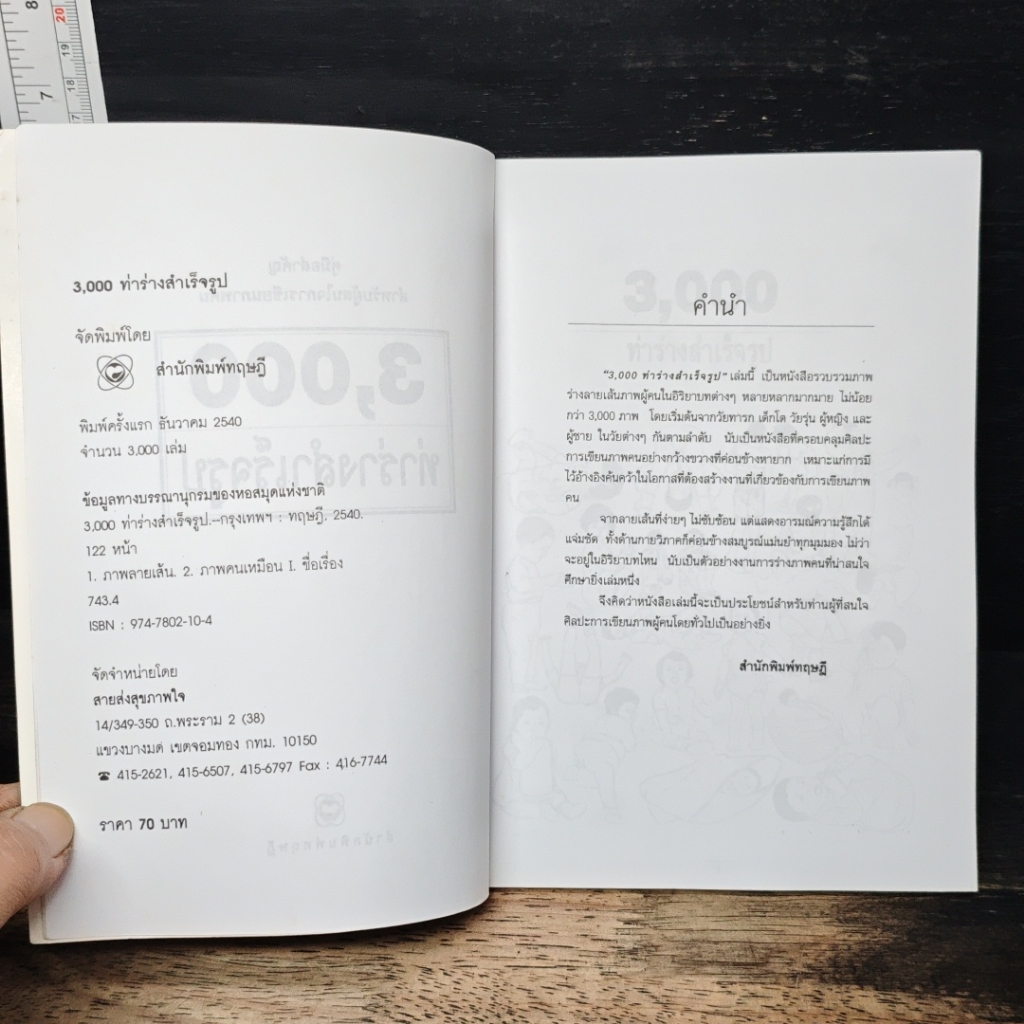 8
20
19
18
7
7
3,000 ท่าร่างสำเร็จรูป
จัดพิมพ์โดย
สำนักพิมพ์ทฤษฎี
พิมพ์ครั้งแรก ธันวาคม 2540
จำนวน 3,000 เล่ม
ข้อมูลทางบรรณานุกรมของหอสมุดแห่งชาติ
3,000 ท่าร่างสำเร็จรูป.--กรุงเทพฯ : ทฤษฎี. 2540.
122 หน้า
1. ภาพลายเส้น. 2. ภาพคนเหมือน I. ชื่อเรื่อง
743.4
ISBN : 974-7802-10-4
จัดจำหน่ายโดย
สายส่งสุขภาพใจ
14/349-350 ถ.พระราม 2 (38)
แขวงบางมด เขตจอมทอง กทม. 10150
☎ 415-2621, 415-6507, 415-6797 Fax : 416-7744
ราคา 70 บาท
คำนำ
"3,000 ท่าร่างสำเร็จรูป" เล่มนี้ เป็นหนังสือรวบรวมภาพ
ร่างลายเส้นภาพผู้คนในอิริยาบทต่างๆ หลายหลากมากมาย ไม่น้อย
กว่า 3,000 ภาพ โดยเริ่มต้นจากวัยทารก เด็กโต วัยรุ่น ผู้หญิง และ
ผู้ชาย ในวัยต่างๆ กันตามลำดับ นับเป็นหนังสือที่ครอบคลุมศิลปะ
การเขียนภาพคนอย่างกว้างขวางที่ค่อนข้างหายาก เหมาะแก่การมี
ไว้อ้างอิงค้นคว้าในโอกาสที่ต้องสร้างงานที่เกี่ยวข้องกับการเขียนภาพ
คน
จากลายเส้นที่ง่ายๆ ไม่ซับซ้อน แต่แสดงอารมณ์ความรู้สึกได้
แจ่มชัด ทั้งด้านกายวิภาคก็ค่อนข้างสมบูรณ์แม่นยำทุกมุมมอง ไม่ว่า
จะอยู่ในอิริยาบทไหน นับเป็นตัวอย่างงานการร่างภาพคนที่น่าสนใจ
ศึกษายิ่งเล่มหนึ่ง
จึงคิดว่าหนังสือเล่มนี้จะเป็นประโยชน์สำหรับท่านผู้ที่สนใจ
ศิลปะการเขียนภาพผู้คนโดยทั่วไปเป็นอย่างยิ่ง
สำนักพิมพ์ทฤษฎี